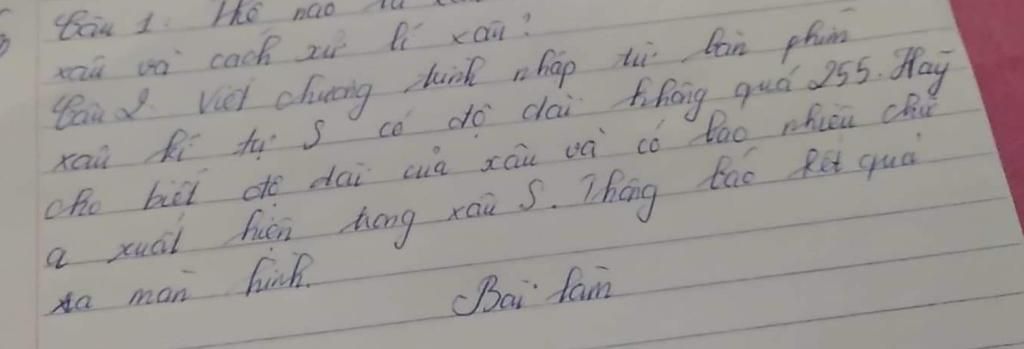 Câu 1. Thế nào là
xâu và cách xử lí xâu?
Câu 2. Viết chương trình nhập từ bàn phím
xâu kí tự S có độ dài không quá 255. Hãy
cho biết độ dài của xâu và có bao nhiêu chữ
a xuất hiện trong xâu S. Thông báo kết quả
ra màn hình.
Bài làm